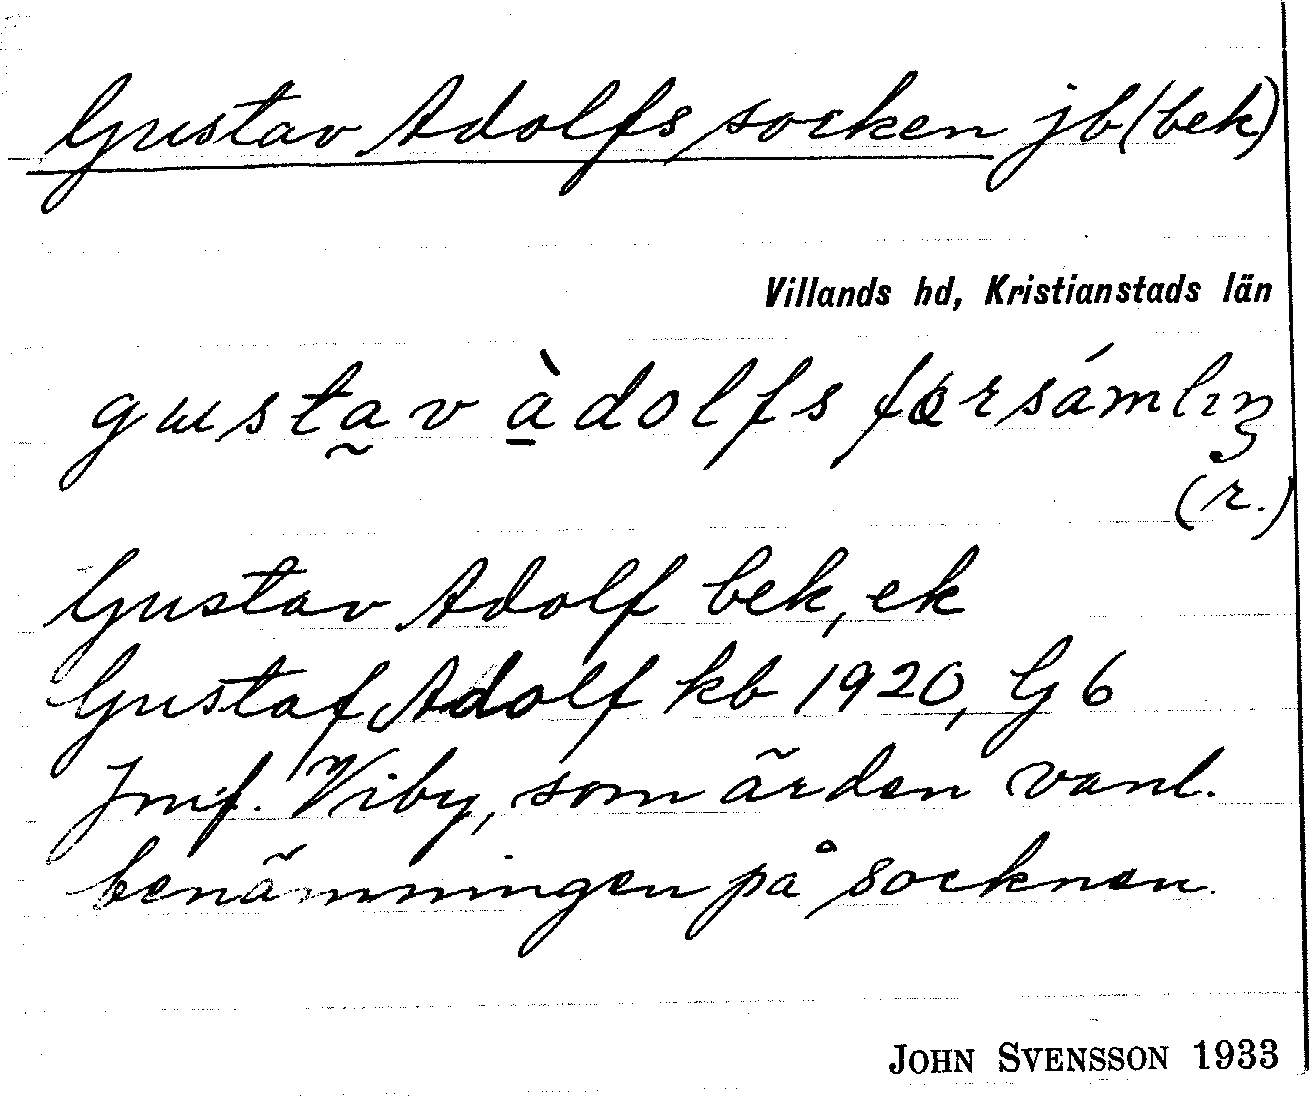 Gustav Adolfs socken jb (bek)
Villands hd, Kristianstads län
gɯsta̰v à̱dolfs førsámlıŋ
(r.)
Gustav Adolf bek, ek
Gustaf Adolf kb 1920, G 6
Jmf. Viby, som är den vanl.
benämningen på socknen.
JOHN SVENSSON 1933